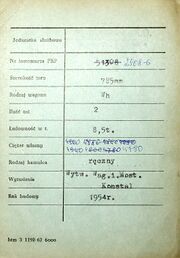 Jednostka służbowa
Nr inwentarza PKP 51308 2508-6
Szerokość toru 785mm
Rodzaj wagonu Wh
Ilość osi 2
Ładowność w t. 8,5t.
Ciężar własny
Rodzaj hamulca ręczny
Wyposażenie Wytw. Wag.i.Most.
Konstal
Rok budowy 1954r.